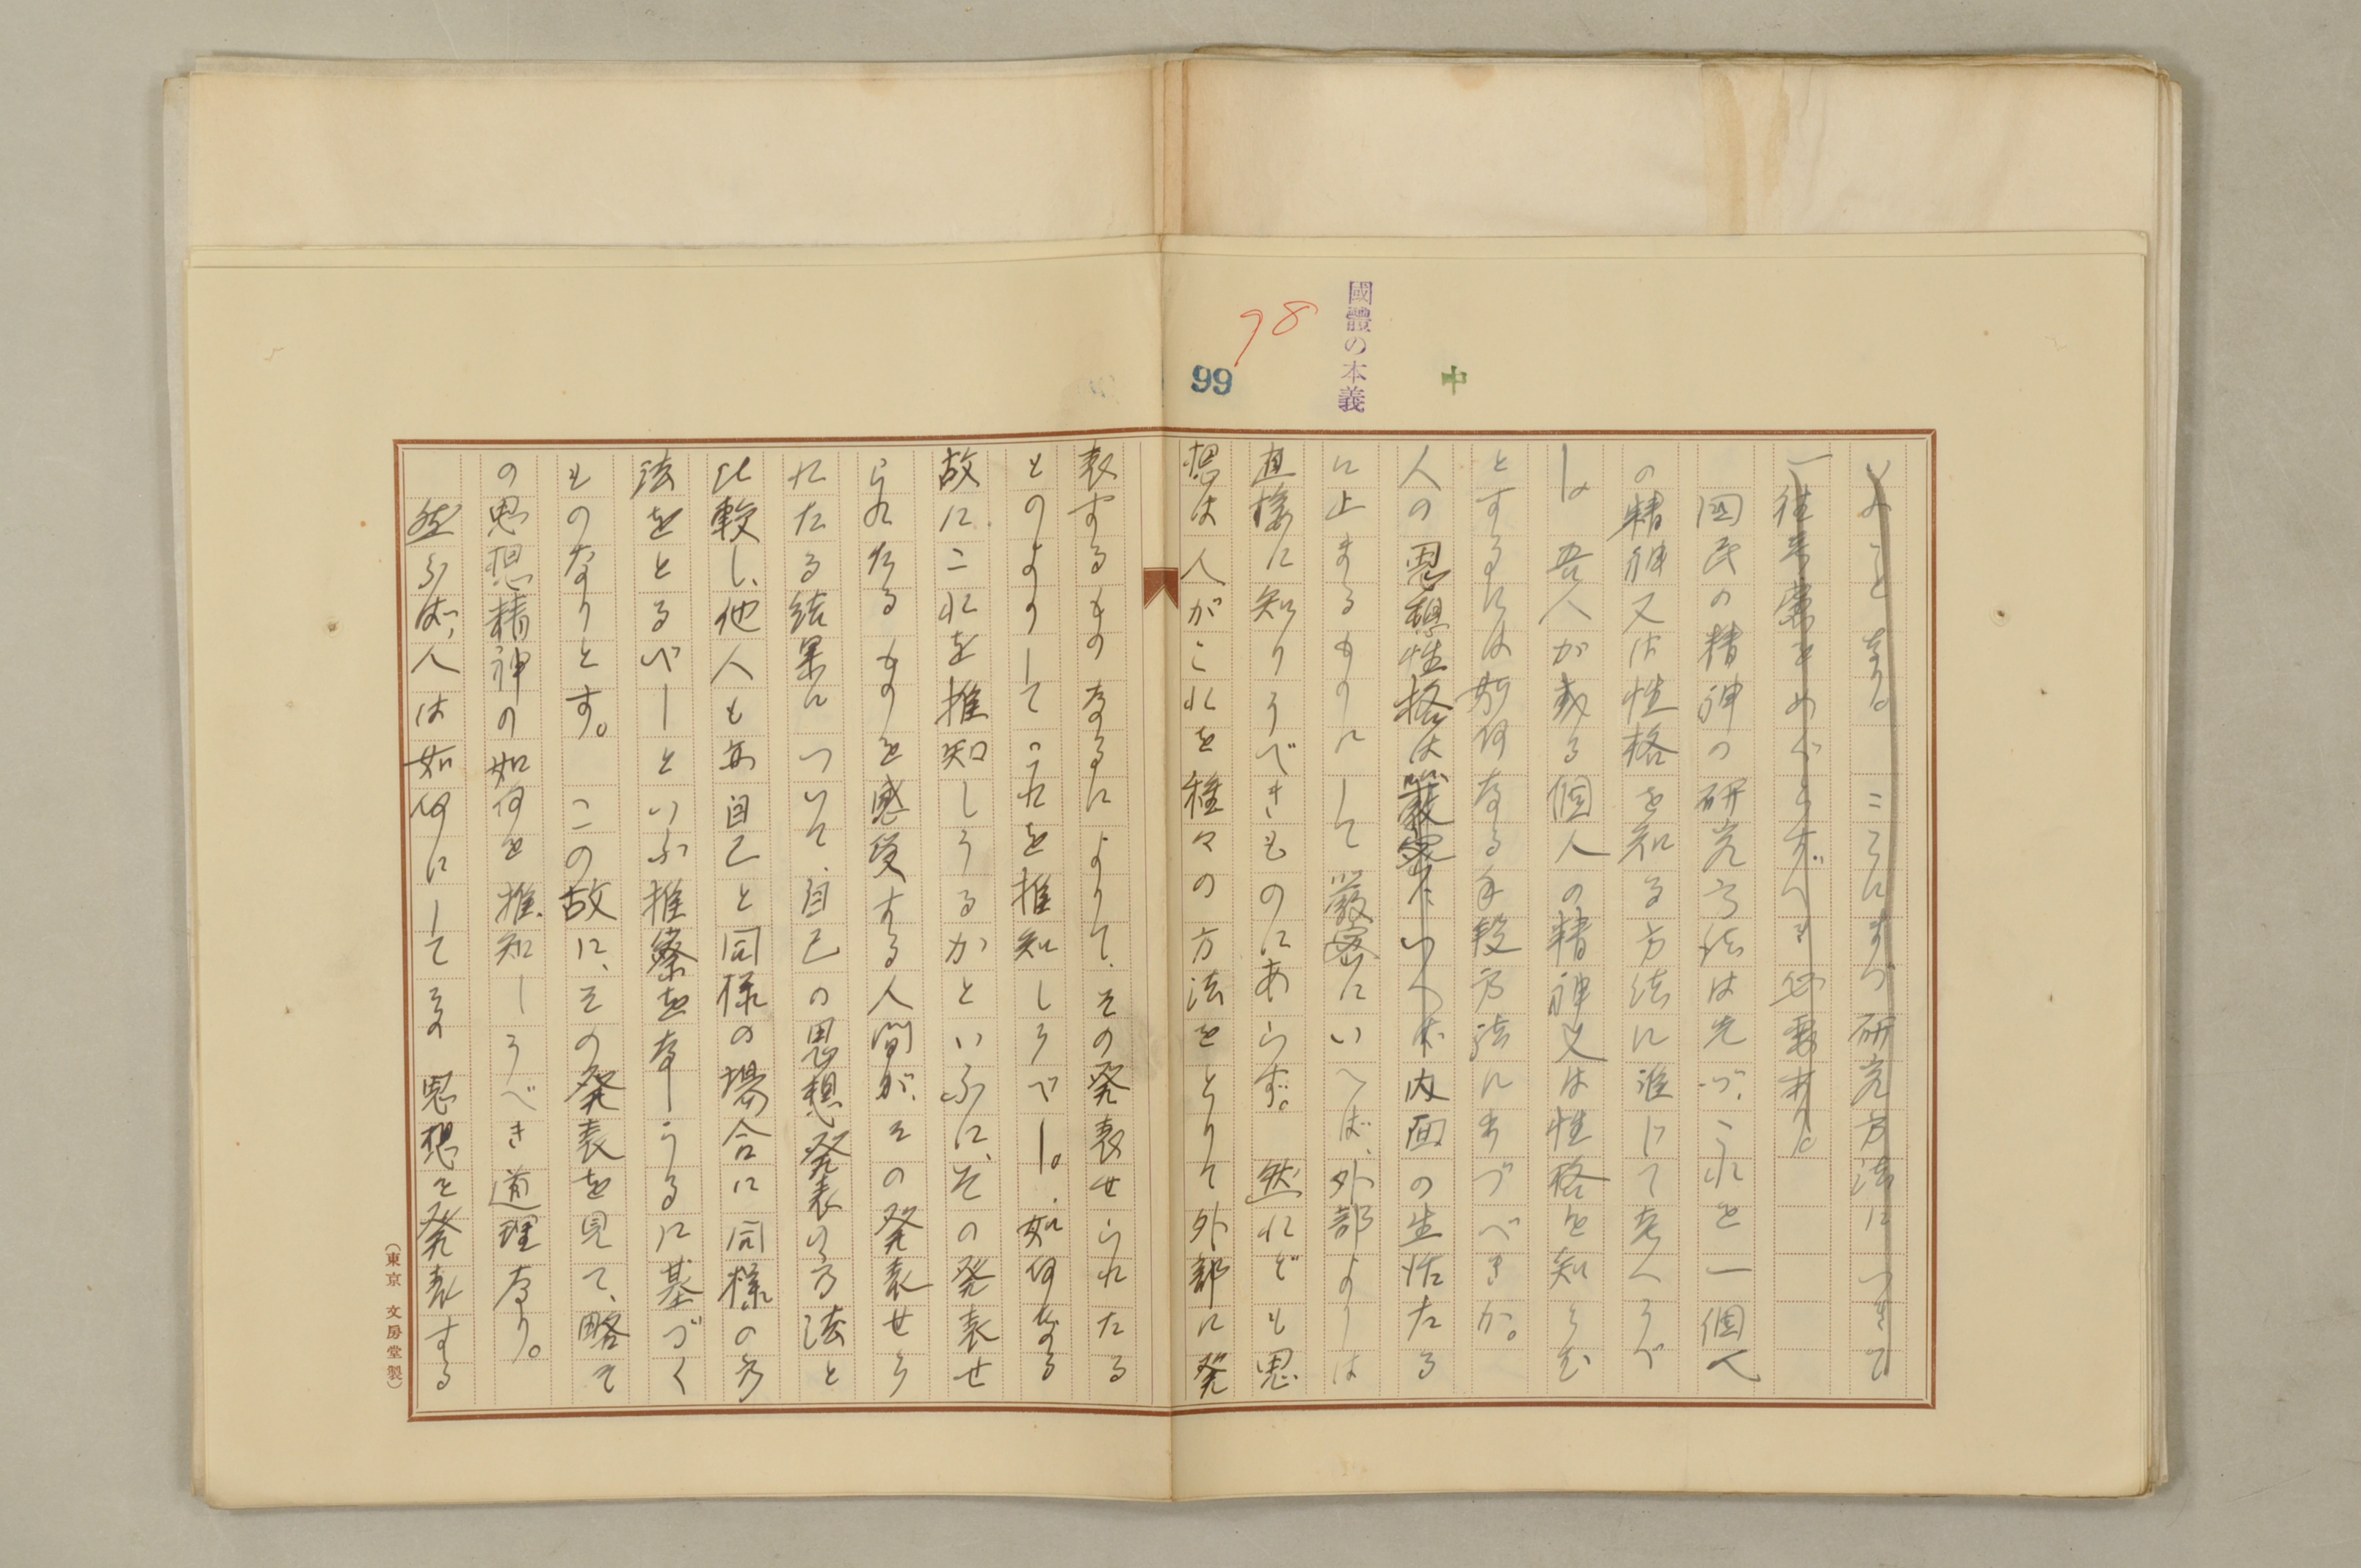 國體の本義
中
98
99
ふことなり。ここにまづ研究方法につきて
一往考慮をめぐらすべき必要あり。
国民の精神の研究方法は先づ、これを一個人
の精神又は性格を知る方法に準じて考へうべ
し。吾人が或る個人の精神又は性格を知らむ
とするには如何なる手段方法にまづべきか。
人の思想性格は厳密にいへば内面の生活たる
に止まるものにして厳密にいへば、外部よりは
直接に知りうべきものにあらず。然れども思
想は人がこれを種々の方法をとりて外部に発
表するものなるによりて、その発表せられたる
ものよりしてこれを推知しうべし。如何なる
故にこれを推知しうるかといふに、その発表せ
られたるものを感受する人間が、その発表せら
れたる結果について、自己の思想発表の方法と
比較し、他人も亦自己と同様の場合に同様の方
法をとるべしといふ推察をなしうるに基づく
ものなりとす。この故に、その発表を見て、略そ
の思想精神の如何を推知しうべき道理なり。
然らば、人は如何にしてその思想を発表する
(東京 文房堂製)